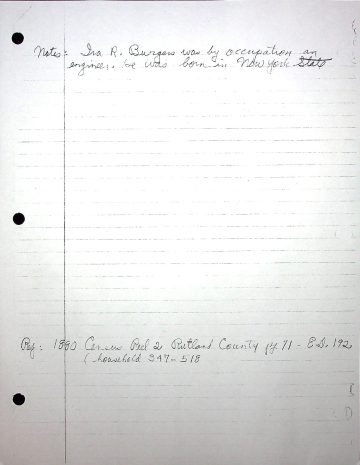 Notes: Ira R. Burgess was by occupation an
engineer. he was born in New York State
Ref: 1880 Census Reel 2 Rutland County pg 71 - E.D. 192
(household 347-518